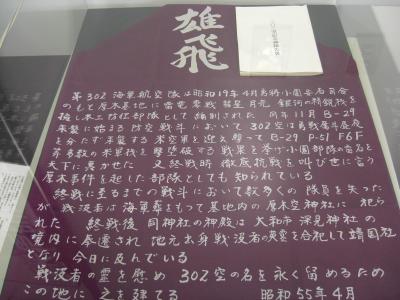 雄飛
第302海軍航空隊は昭和19年4月 司令小園安名司令
のもと厚木基地に雷電 零戦 彗星 月光 銀河の精鋭機を
擁し本土防衛部隊として編制された 同年11月 B-29
来襲に始まる防空戦斗において 302空は勇戦奮斗昼夜
を分たず来襲する米空軍を迎え撃って B-29 P-51 F6F
等多数の米軍機を撃墜破する戦果を挙げ小園部隊の名を
天下に轟かせた 又終戦時 徹底抗戦を叫び世に言う
厚木事件を起した部隊としても知られている
終戦に至るまでの戦斗において数多くの隊員を失った
が 戦没者は海軍葬をもって基地内の厚木空神社に祀ら
れた 終戦後 同神社の神殿は 大和市深見神社の
境内に奉遷され 地元出身戦没者の英霊を合祀して靖国社
となり 今日に及んでいる
戦没者の霊を慰め 302空の名を永く留めるため
この地に之を建てる 昭和55年4月